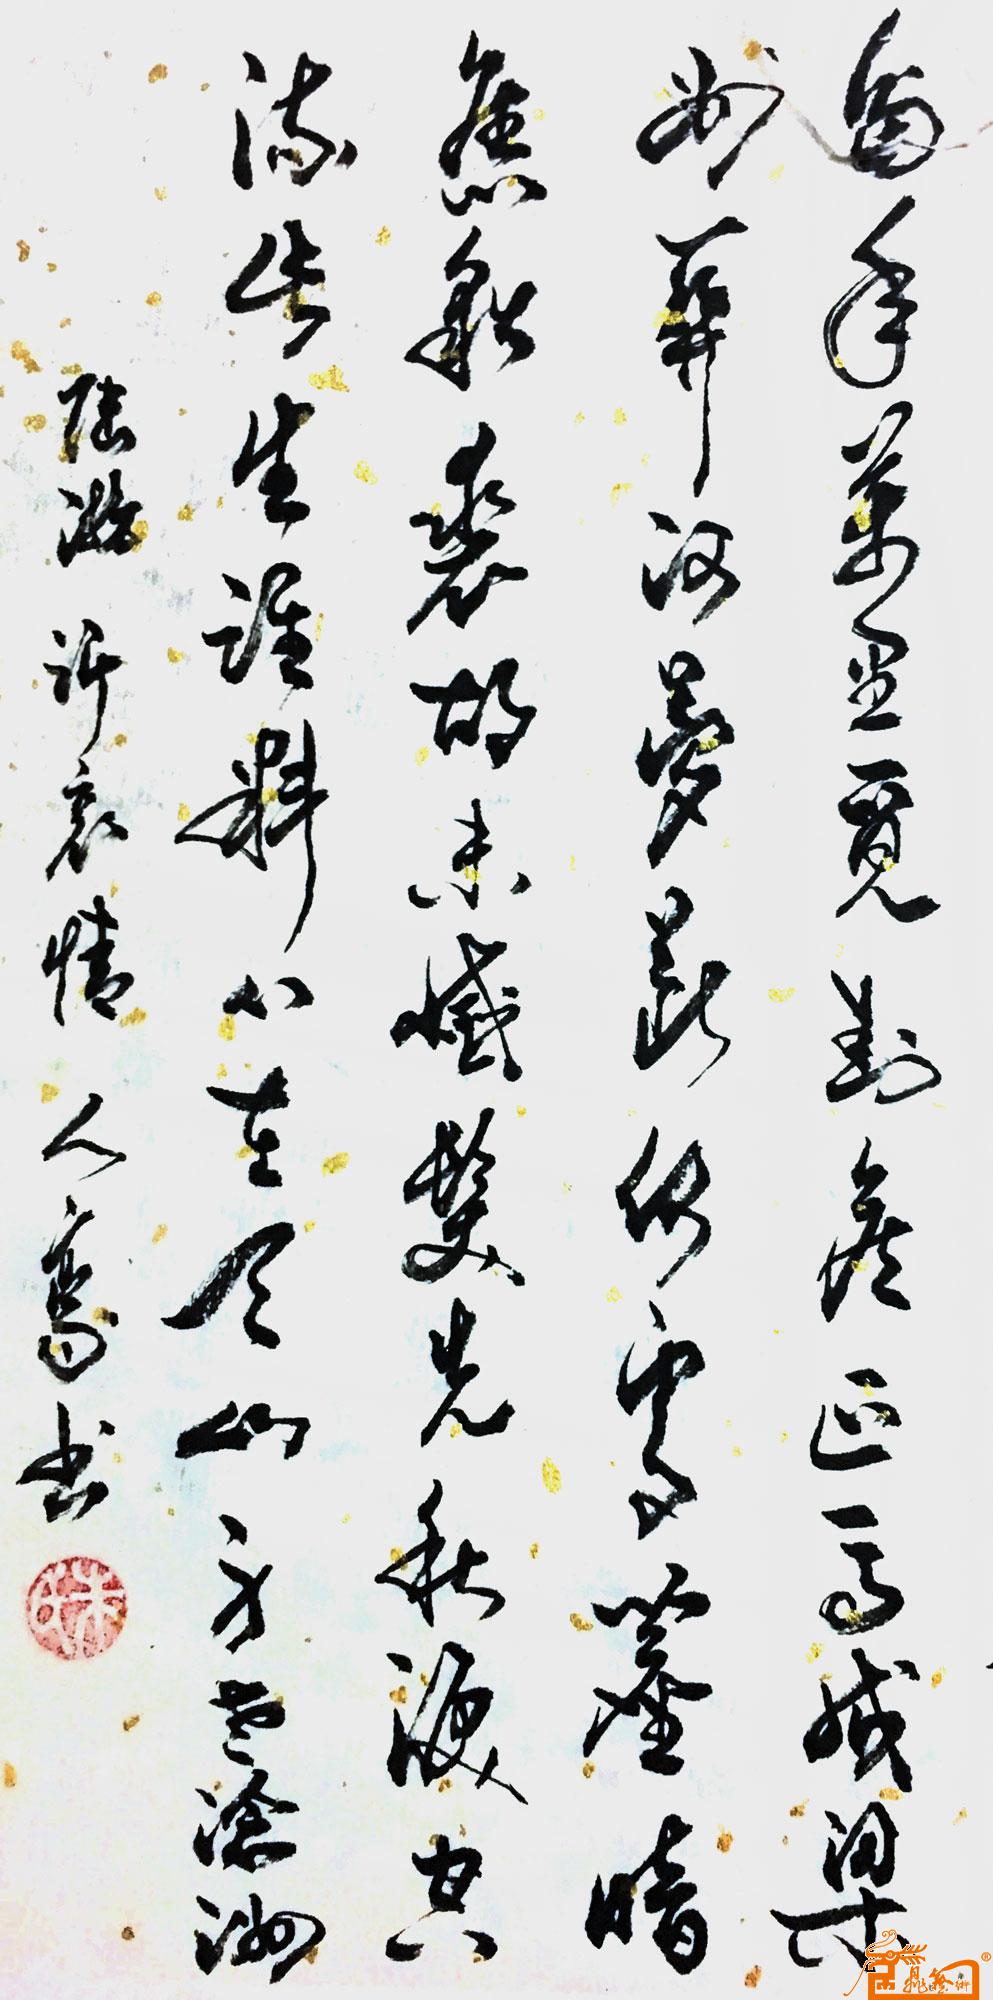 當年萬里覓封侯匹馬戍梁
州關河夢斷何處塵暗
舊貂裘胡未滅鬢先秋淚空
流此生誰料心在天山身老滄洲
陸游 訴衷情 書